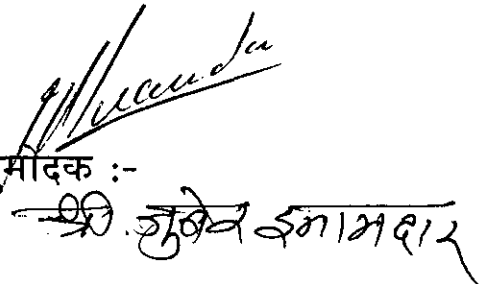 मोदक :-
श्री. जुबेर इनामदार